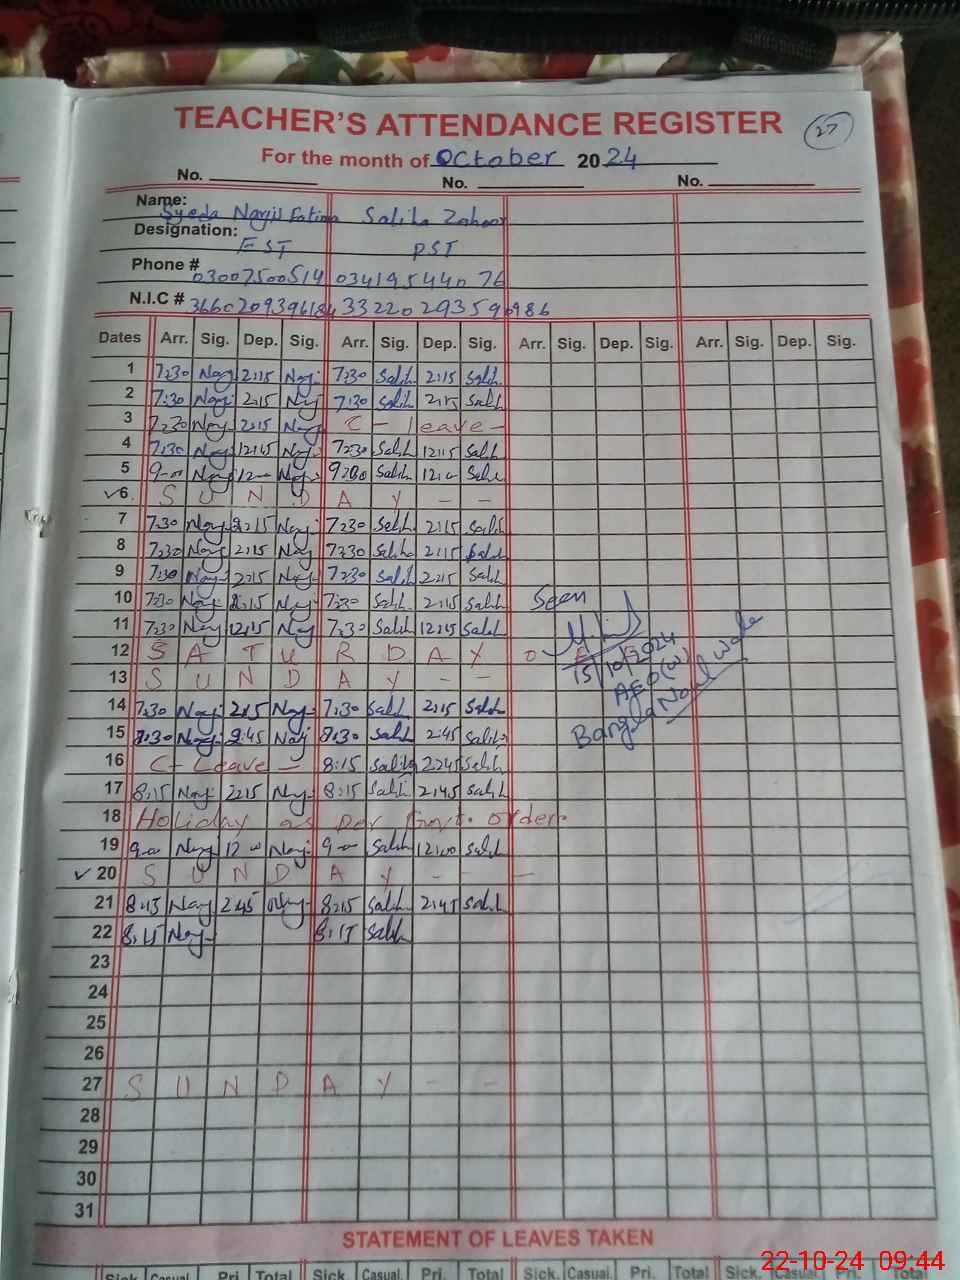 TEACHER'S ATTENDANCE REGISTER 27
For the month of October 2024
No. No. No.
Name: Syeda Narjil Fatima Saliha Zahoor
Designation: EST PST
Phone # 03007500514 03419544076
N.I.C # 3322029359
Dates Arr. Sig. Dep. Sig. Arr. Sig. Dep. Sig. Arr. Sig. Dep. Sig. Arr. Sig. Dep. Sig.
1 7:30 Narj 2:15 Narj 7:30 Salih 2:15 Salih
2 7:30 Narj 2:15 Narj 7:30 Salih 2:15 Salih
3 7:30 Narj 2:15 Narj C - leave -
4 7:30 Narj 12:15 Narj 7:30 Salih 12:15 Salih
5 9-00 Narj 12-00 Narj 9:00 Salih 12:00 Salih
✓6 S U N D A Y - -
7 7:30 Narj 2:15 Narj 7:30 Salih 2:15 Salih
8 7:30 Narj 2:15 Narj 7:30 Saliha 2:15 Salih
9 7:30 Narj 2:15 Narj 7:30 Salih 2:15 Salih
10 7:30 Narj 2:15 Narj 7:30 Salih 2:15 Salih Seen
11 7:30 Narj 12:15 Narj 7:30 Salih 12:15 Salih
12 S A T U R D A Y
15/10/2024
13 S U N D A Y - -
AEO(W)
14 7:30 Narj 2:15 Narj 7:30 Salih 2:15 Salih
Bangla Noul wala
15 8:30 Narj 2:45 Narj 8:30 Salih 2:45 Saliha
16 C - Leave - 8:15 Saliha 2:45 Salih
17 8:15 Narj 2:15 Narj 8:15 Salih 2:45 Salih
18 Holiday as per Govt. order
19 9-00 Narj 12-00 Narj 9-00 Salih 12:00 Salih
✓20 S U N D A Y - - -
21 8:15 Narj 2:45 Narj 8:15 Salih 2:45 Salih
22 8:15 Narj 8:15 Salih
23
24
25
26
27 S U N D A Y - -
28
29
30
31
STATEMENT OF LEAVES TAKEN
Sick Casual Pri. Total Sick. Casual. Pri. Total Sick. Casual. Pri. Total Sick. Casual. Pri. Total
22-10-24 09:44